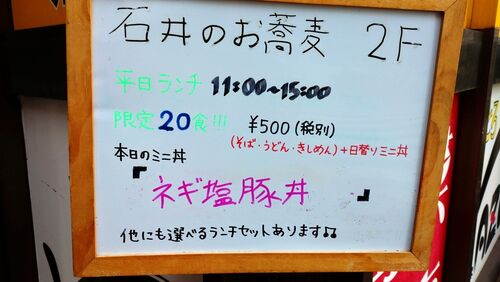 石井のお蕎麦 2F
平日ランチ 11:00~15:00
限定20食!!! ¥500(税別)
(そば・うどん・きしめん)+日替りミニ丼
本日のミニ丼
『ネギ塩豚丼』
他にも選べるランチセットあります♫